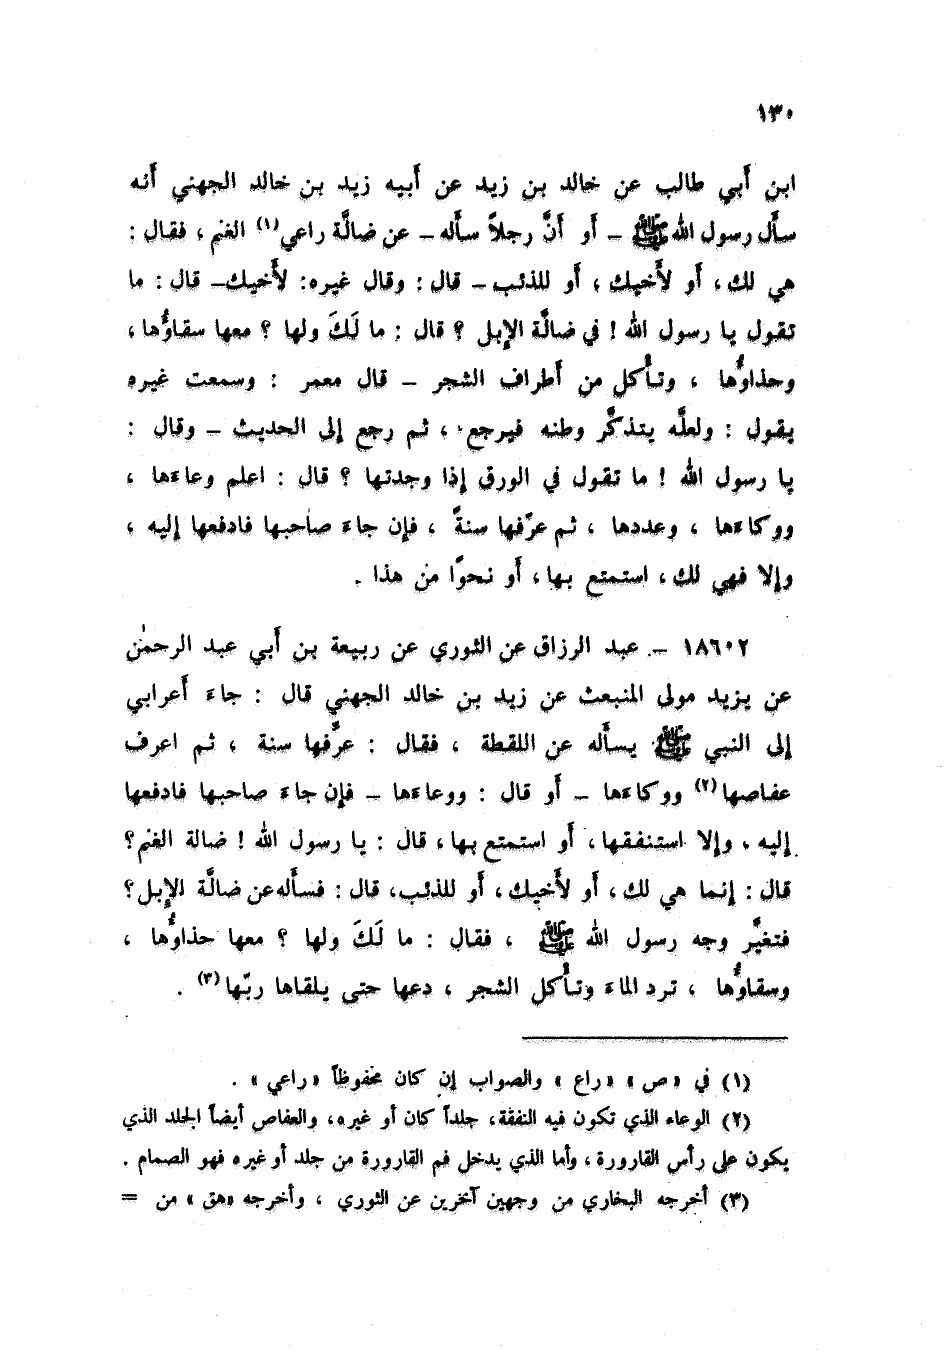 ١٣٠
ابن أبي طالب عن خالد بن زيد عن أبيه زيد بن خالد الجهني أنه
سأل رسول الله ﷺ – أو أنَّ رجلاً سأله – عن ضالَّة راعي(١) الغنم ، فقال :
هي لك ، أو لأخيك ، أو للذئب – قال : وقال غيره : لأخيك – قال : ما
تقول يا رسول الله ! في ضالَّة الإبل ؟ قال : ما لَكَ ولها ؟ معها سقاؤُها ،
وحذاؤُها ، وتأكل من أطراف الشجر – قال معمر : وسمعت غيره
يقول : ولعلَّه يتذكَّر وطنه فيرجع ، ثم رجع إلى الحديث – وقال :
يا رسول الله ! ما تقول في الورق إذا وجدتها ؟ قال : اعلم وعاءها ،
ووكاءها ، وعددها ، ثم عرِّفها سنةً ، فإن جاء صاحبها فادفعها إليه ،
وإلا فهي لك ، استمتع بها ، أو نحوًا من هذا .
١٨٦٠٢ – عبد الرزاق عن الثوري عن ربيعة بن أبي عبد الرحمٰن
عن يزيد مولى المنبعث عن زيد بن خالد الجهني قال : جاء أعرابي
إلى النبي ﷺ يسأله عن اللقطة ، فقال : عرِّفها سنة ، ثم اعرف
عفاصها(٢) ووكاءها – أو قال : ووعاءها – فإن جاء صاحبها فادفعها
إليه ، وإلا استنفقها ، أو استمتع بها ، قال : يا رسول الله ! ضالة الغنم ؟
قال : إنما هي لك ، أو لأخيك ، أو للذئب ، قال : فسأله عن ضالَّة الإبل ؟
فتغيَّر وجه رسول الله ﷺ ، فقال : ما لَكَ ولها ؟ معها حذاؤُها ،
وسقاؤُها ، ترد الماء وتأكل الشجر ، دعها حتى يلقاها ربّها(٣) .
(١) في «ص» «راع» والصواب إن كان محفوظاً «راعي» .
(٢) الوعاء الذي تكون فيه النفقة ، جلداً كان أو غيره ، والعفاص أيضاً الجلد الذي
يكون على رأس القارورة ، وأما الذي يدخل فم القارورة من جلد أو غيره فهو الصمام .
(٣) أخرجه البخاري من وجهين آخرين عن الثوري ، وأخرجه «هق» من =